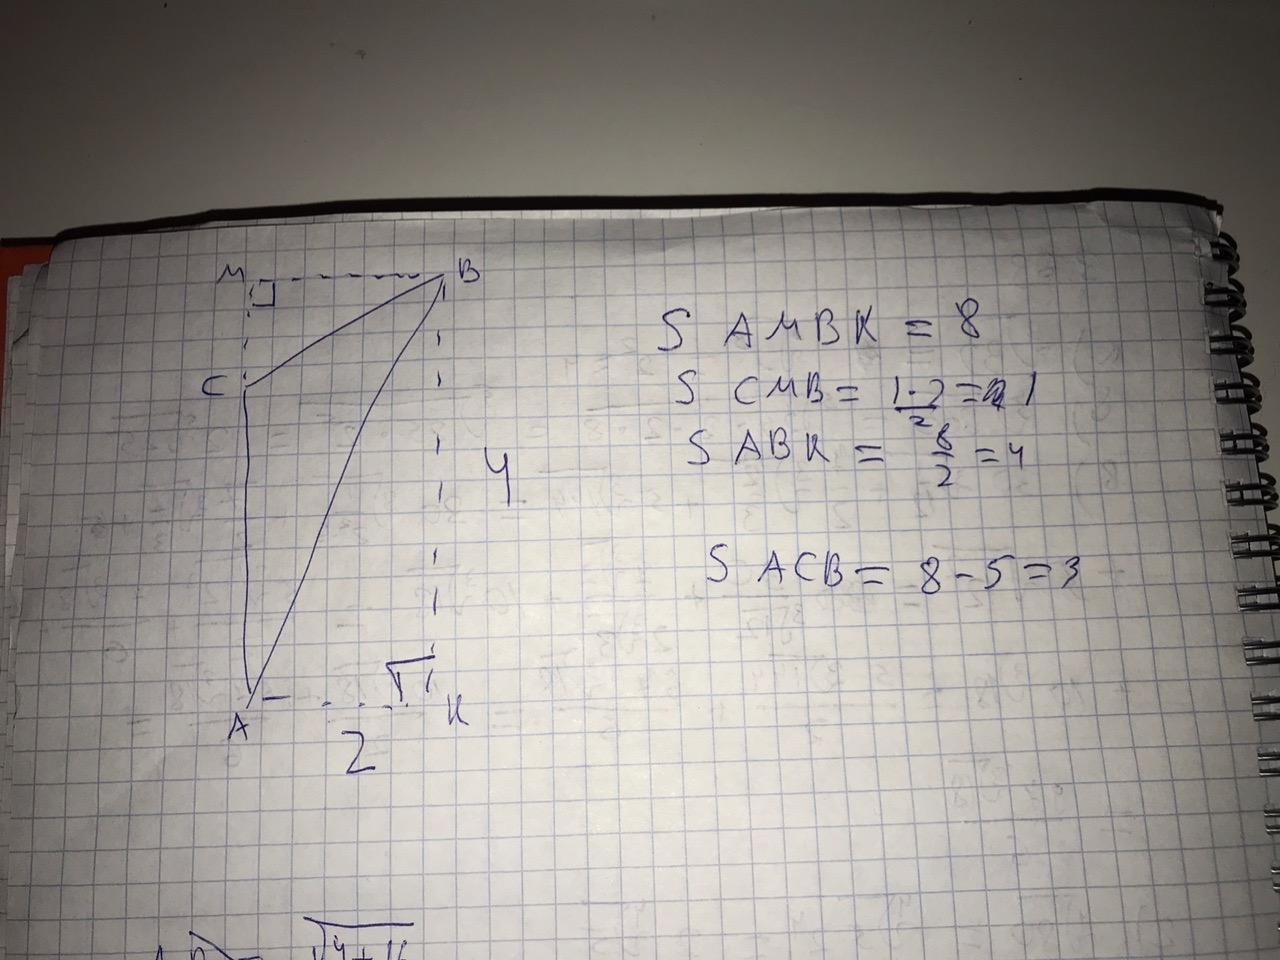 M
B
C
4
A
K
2
S AMBK = 8
S CMB = 1·2/2 = 1
S ABK = 8/2 = 4
S ACB = 8 - 5 = 3
√4+16